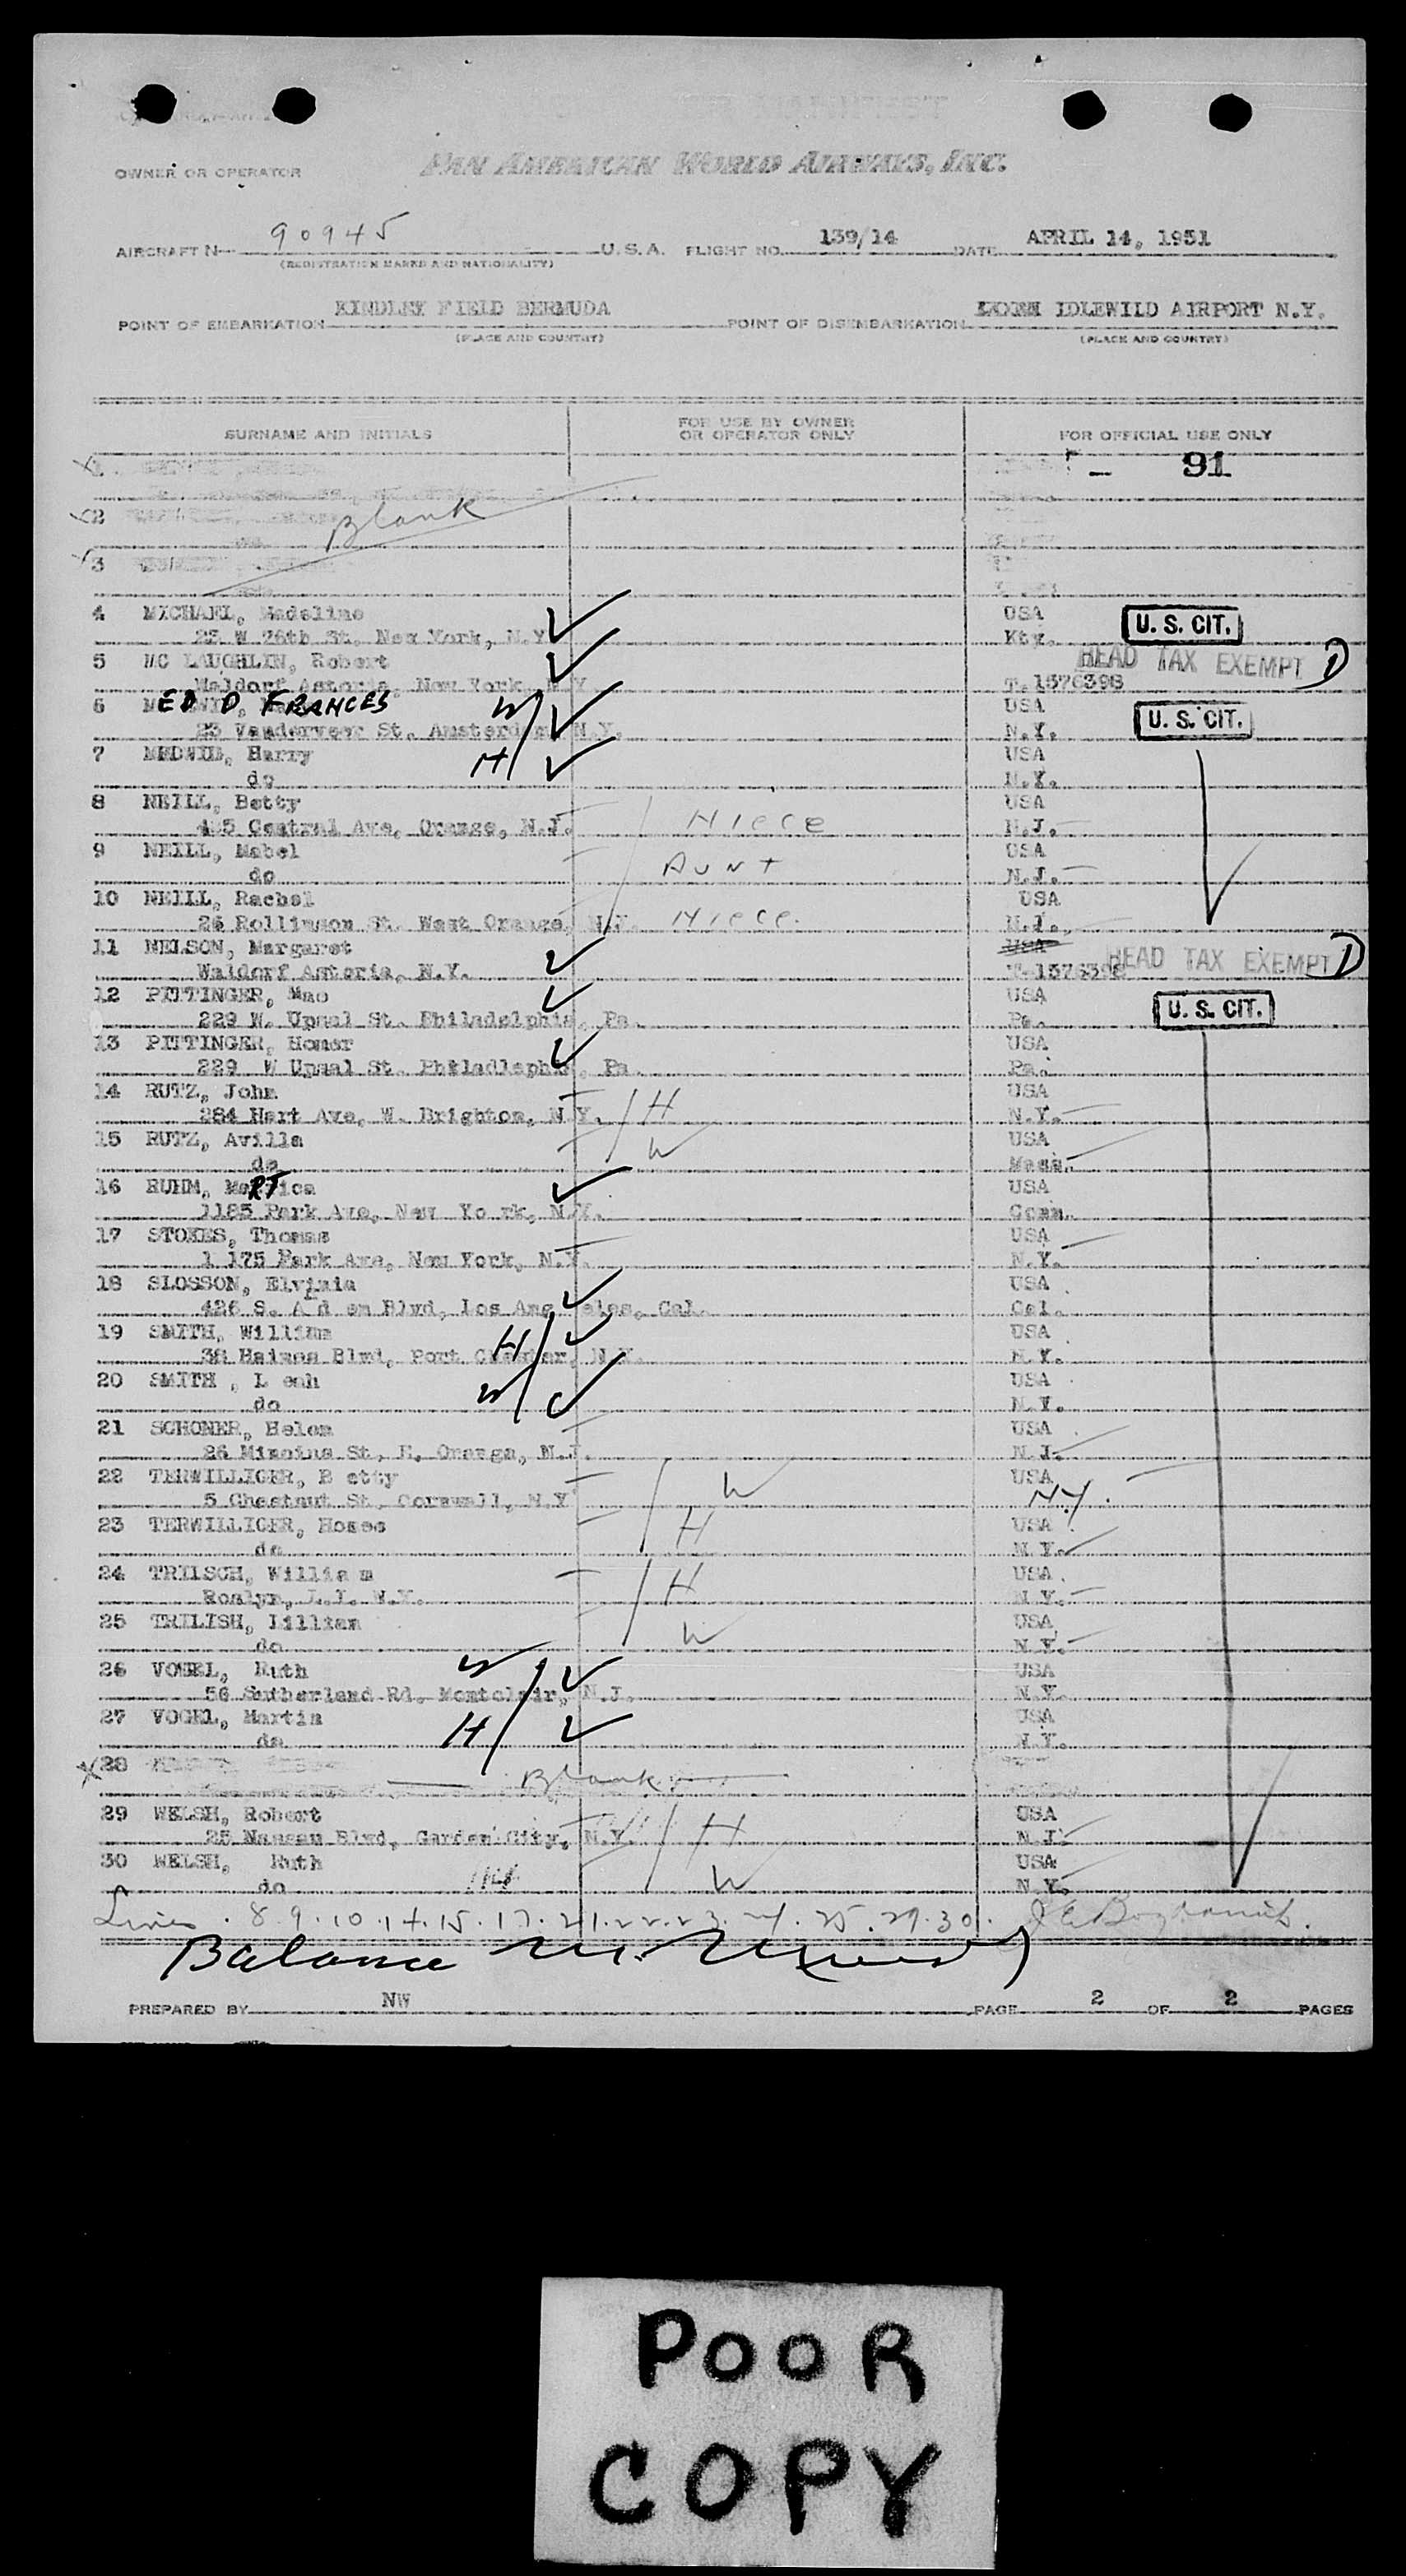 OWNER OR OPERATOR PAN AMERICAN WORLD AIRWAYS, INC.
AIRCRAFT N- 90945 U.S.A. FLIGHT NO. 139/14 DATE APRIL 14, 1951
(REGISTRATION MARKS AND NATIONALITY)
POINT OF EMBARKATION KINDLEY FIELD BERMUDA POINT OF DISEMBARKATION IDLEWILD AIRPORT N.Y.
(PLACE AND COUNTRY) (PLACE AND COUNTRY)
SURNAME AND INITIALS FOR USE BY OWNER OR OPERATOR ONLY FOR OFFICIAL USE ONLY
1 - 91
2 Blank
3
4 MICHAEL, Madeline USA
23 W 26th St. New York, N.Y. Kty. U. S. CIT.
5 MC LAUGHLIN, Robert HEAD TAX EXEMPT
Waldorf Astoria, New York, N.Y. T.1576398
6 ED D FRANCES W USA U. S. CIT.
23 Vanderveer St. Amsterdam, N.Y. N.Y.
7 MEDWID, Harry H USA
do N.Y.
8 NEILL, Betty USA
Central Ave, Orange, N.J. Niece N.J.
9 NEILL, Mabel USA
do Aunt N.J.
10 NEILL, Rachel USA
26 Rollinson St. West Orange, N.J. Niece. N.J.
11 NELSON, Margaret USA HEAD TAX EXEMPT
Waldorf Astoria, N.Y.
12 PITTINGER, Mae USA U. S. CIT.
229 W. Upsal St. Philadelphia, Pa. Pa.
13 PITTINGER, Homer USA
229 W Upsal St. Philadlephia, Pa Pa.
14 RUTZ, John H USA
284 Hart Ave, W. Brighton, N.Y. N.Y.
15 RUTZ, Avilla W USA
do Mass.
16 RUHM, USA
1185 Park Ave, New York, N.Y. Conn.
17 STOKES, Thomas USA
1 175 Park Ave, New York, N.Y. N.Y.
18 SLOSSON, USA
426 S. Blvd, Los Angeles, Cal. Cal.
19 SMITH, William H USA
38 Haines Blvd, Port Chester, N.Y. N.Y.
20 SMITH , L eah W USA
do N.Y.
21 SCHONER, Helen USA
St, E. Orange, N.J. N.J.
22 TERWILLIGER, B etty W USA
5 Chestnut St, Cornwall, N.Y N.Y.
23 TERWILLIGER, Hosea H USA
do N.Y.
24 TRILSCH, Willia m H USA
Roslyn, L.I. N.Y. N.Y.
25 TRILISH, Lillian W USA
do N.Y.
26 VOGEL, Ruth W USA
56 Sutherland Rd. Montclair, N.J. N.Y.
27 VOGEL, Martin H USA
do N.Y.
28 Blank
29 WELSH, Robert H USA
25 Nassau Blvd, Garden City, N.Y. N.J.
30 WELSH, Ruth W USA
do N.Y.
Lines . 8 9 . 10 . 14 . 15 . 17 . 21 . 22 . 23 . 24 . 25 . 29 . 30 .
Balance
PREPARED BY NW PAGE 2 OF 2 PAGES
POOR
COPY